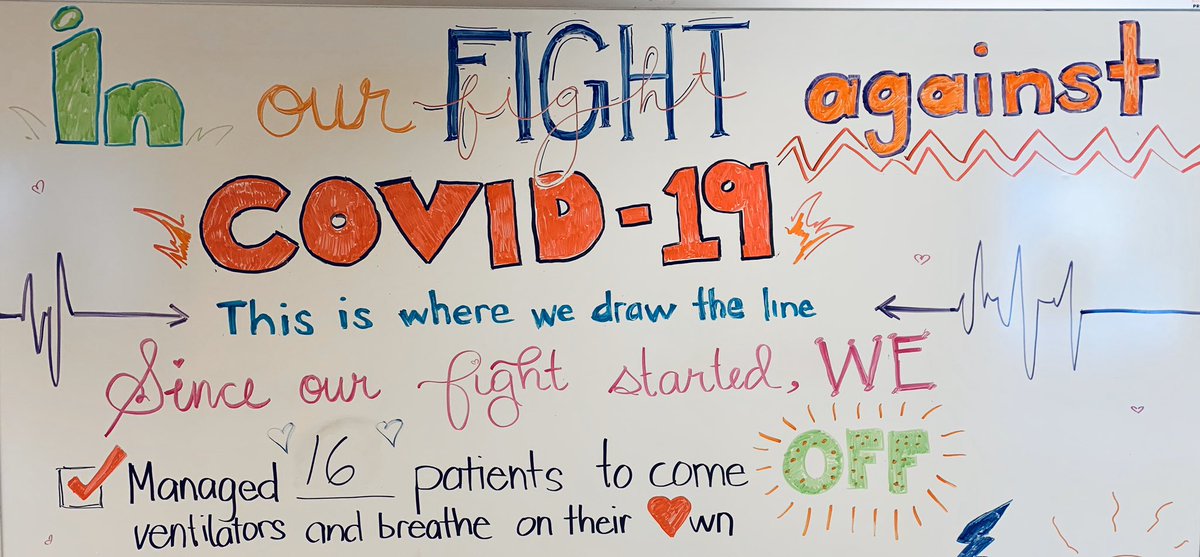 in our FIGHT fight against
COVID-19
This is where we draw the line
Since our fight started, WE
Managed 16 patients to come OFF
ventilators and breathe on their ❤wn